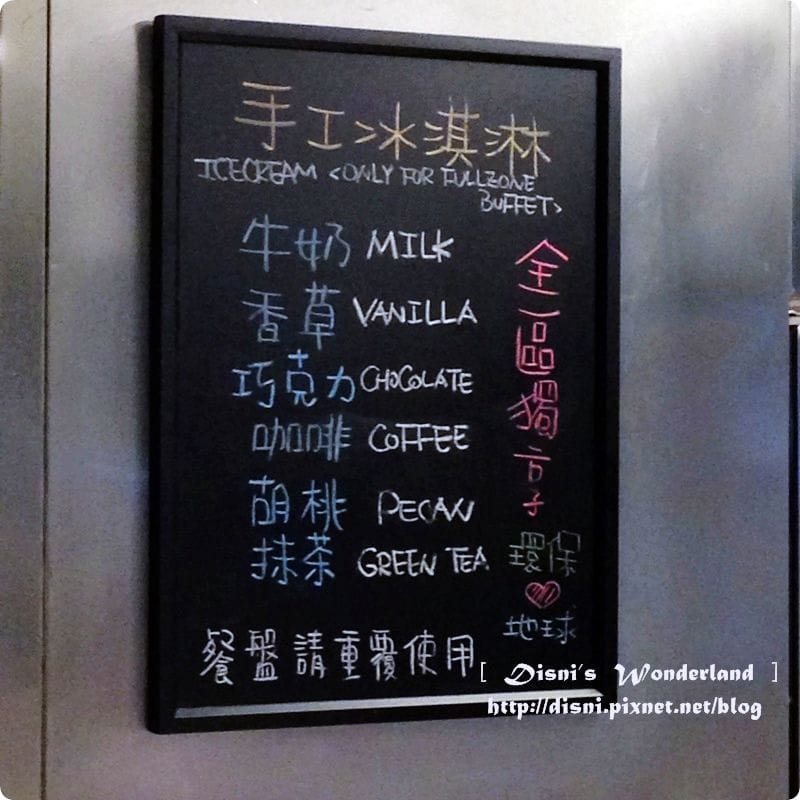 手工冰淇淋
ICECREAM <ONLY FOR FULLZONE
BUFFET>
牛奶 MILK
香草 VANILLA
巧克力 CHOCOLATE
咖啡 COFFEE
胡桃 PECAN
抹茶 GREEN TEA
全區獨享
環保
地球
餐盤請重覆使用
[ Disni's Wonderland ]
http://disni.pixnet.net/blog